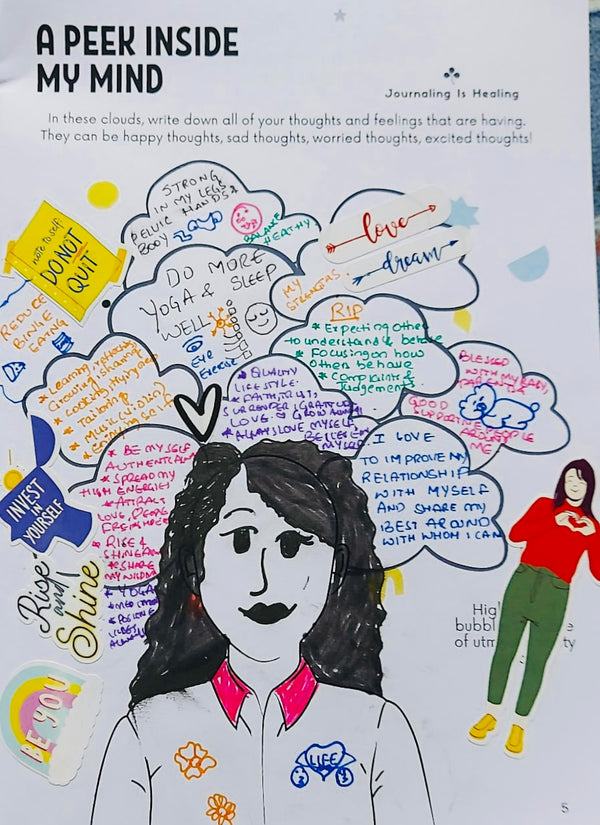 A PEEK INSIDE
MY MIND
Journaling Is Healing
In these clouds, write down all of your thoughts and feelings that are having.
They can be happy thoughts, sad thoughts, worried thoughts, excited thoughts!
STRONG
IN MY LEGS
PELVIC HANDS &
BODY
BALANCE
HEALTHY
love
dream
MY
STRENGERS
note to self:
DO NOT
QUIT
REDUCE
BINGE
EATNG
DO MORE
YOGA & SLEEP
WELL
EYE
EXERCISE
RIP
* Expecting other
to understand & behave
* Focusing on how
others behave
* Complaints &
Judgements
* Learning, reflecting
Growing & sharing
* Cooking
* Tailoring
* Music (violin)
* Enjoying
* QUALITY
LIFE STYLE.
* FAITH, TRUST,
SURRENDER, GRATITUDE
LOVE &
* ALWAYS LOVE MYSELF,
BELIEVE IN
MYSELF
BLESSED
WITH MY BABY,
GOOD
SUPPORTIVE PEOPLE
AROUND
ME
I LOVE
TO IMPROVE MY
RELATIONSHIP
WITH MYSELF
AND SHARE MY
BEST AROUND
WITH WHOM I CAN
* BE MY SELF
AUTHENTICALLY
* SPREAD MY
HIGH ENERGIES
* ATTRACT
LOVE
* RISE &
SHINE
* SHARE
MY WISDOM
* YOGA
* POSITIVE
VIBES
ALWAYS
INVEST
IN
YOURSELF
Rise
and
Shine
BE YOU
Hig
bubbl
of utm
LIFE
5